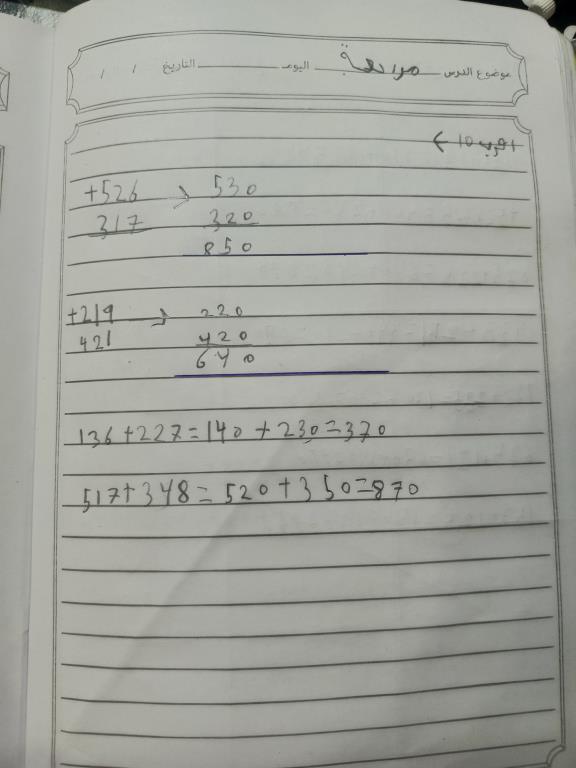 موضوع الدرس مراجعة اليوم التاريخ / /
اقرب 10 →
+526 → 530
317 320
850
+219 → 220
421 420
640
136+227=140+230=370
517+348=520+350=870